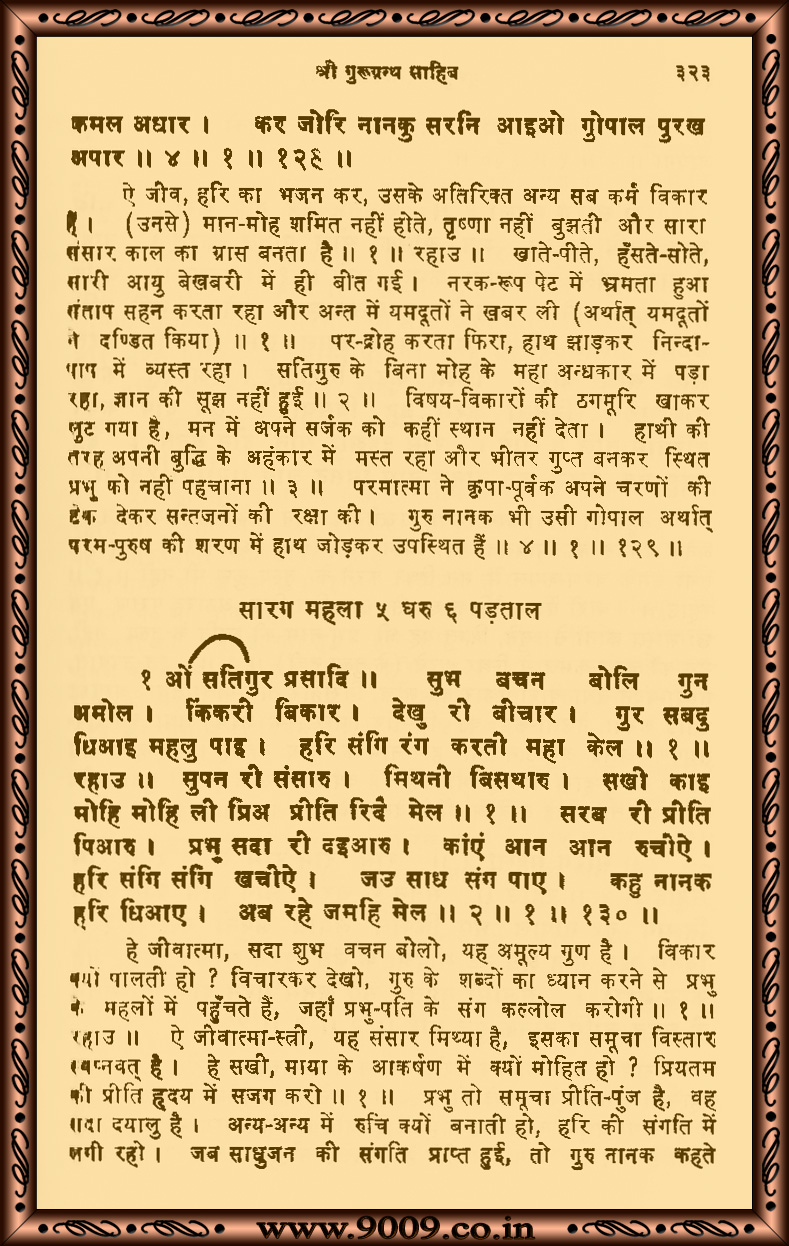 श्री गुरूग्रन्थ साहिब ३२३
कमल अधार । कर जोरि नानकु सरनि आइओ गुोपाल पुरख
अपार ॥ ४ ॥ १ ॥ १२९ ॥
ऐ जीव, हरि का भजन कर, उसके अतिरिक्त अन्य सब कर्म विकार
हैं । (उनसे) मान-मोह शमित नहीं होते, तृष्णा नहीं बुझती और सारा
संसार काल का ग्रास बनता है ॥ १ ॥ रहाउ ॥ खाते-पीते, हँसते-सोते,
सारी आयु बेखबरी में ही बीत गई । नरक-रूप पेट में भ्रमता हुआ
संताप सहन करता रहा और अन्त में यमदूतों ने खबर ली (अर्थात् यमदूतों
ने दण्डित किया) ॥ १ ॥ पर-द्रोह करता फिरा, हाथ झाड़कर निन्दा-
पाप में व्यस्त रहा । सतिगुरु के बिना मोह के महा अन्धकार में पड़ा
रहा, ज्ञान की सूझ नहीं हुई ॥ २ ॥ विषय-विकारों की ठगमूरि खाकर
लुट गया है, मन में अपने सर्जक को कहीं स्थान नहीं देता । हाथी की
तरह अपनी बुद्धि के अहंकार में मस्त रहा और भीतर गुप्त बनकर स्थित
प्रभु को नही पहचाना ॥ ३ ॥ परमात्मा ने कृपा-पूर्वक अपने चरणों की
टेक देकर सन्तजनों की रक्षा की । गुरु नानक भी उसी गोपाल अर्थात्
परम-पुरुष की शरण में हाथ जोड़कर उपस्थित हैं ॥ ४ ॥ १ ॥ १२९ ॥
सारग महला ५ घरु ६ पड़ताल
१ ओं सतिगुर प्रसादि ॥ सुभ बचन बोलि गुन
अमोल । किंकरी बिकार । देखु री बीचार । गुर सबदु
धिआइ महलु पाइ । हरि संगि रंग करती महा केल ॥ १ ॥
रहाउ ॥ सुपन री संसारु । मिथनी बिसथारु । सखी काइ
मोहि मोहि ली प्रिअ प्रीति रिदै मेल ॥ १ ॥ सरब री प्रीति
पिआरु । प्रभु सदा री दइआरु । कांएं आन आन रुचीऐ ।
हरि संगि संगि खचीऐ । जउ साध संग पाए । कहु नानक
हरि धिआए । अब रहे जमहि मेल ॥ २ ॥ १ ॥ १३० ॥
हे जीवात्मा, सदा शुभ वचन बोलो, यह अमूल्य गुण है । विकार
क्यों पालती हो ? विचारकर देखो, गुरु के शब्दों का ध्यान करने से प्रभु
के महलों में पहुँचते हैं, जहाँ प्रभु-पति के संग कल्लोल करोगी ॥ १ ॥
रहाउ ॥ ऐ जीवात्मा-स्त्री, यह संसार मिथ्या है, इसका समूचा विस्तार
स्वप्नवत् है । हे सखी, माया के आकर्षण में क्यों मोहित हो ? प्रियतम
की प्रीति हृदय में सजग करो ॥ १ ॥ प्रभु तो समूचा प्रीति-पुंज है, वह
सदा दयालु है । अन्य-अन्य में रुचि क्यों बनाती हो, हरि की संगति में
लगी रहो । जब साधुजन की संगति प्राप्त हुई, तो गुरु नानक कहते
www.9009.co.in